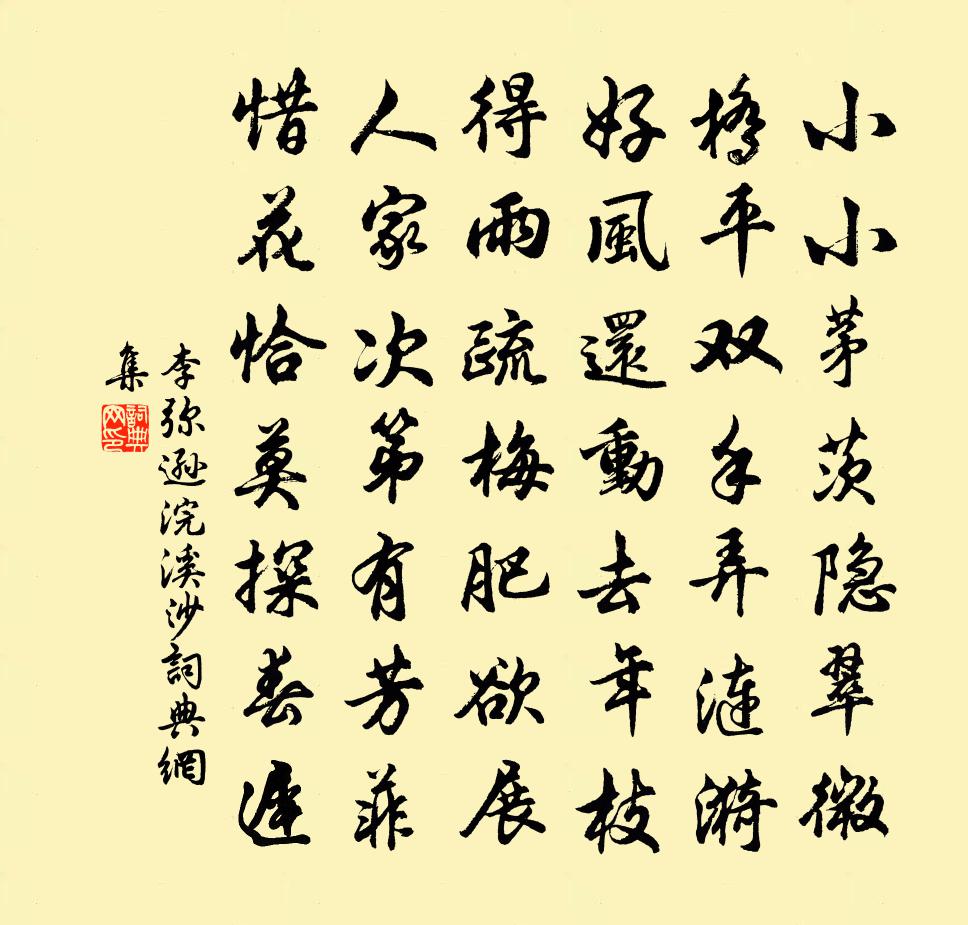 小小茅茨隐翠微
橋平双手弄漣漪
好風還動去年枝
得雨疏梅肥欲展
人家次第有芳菲
惜花恰莫探春遲
李弥遜浣溪沙詞典網
集
詞典
网印